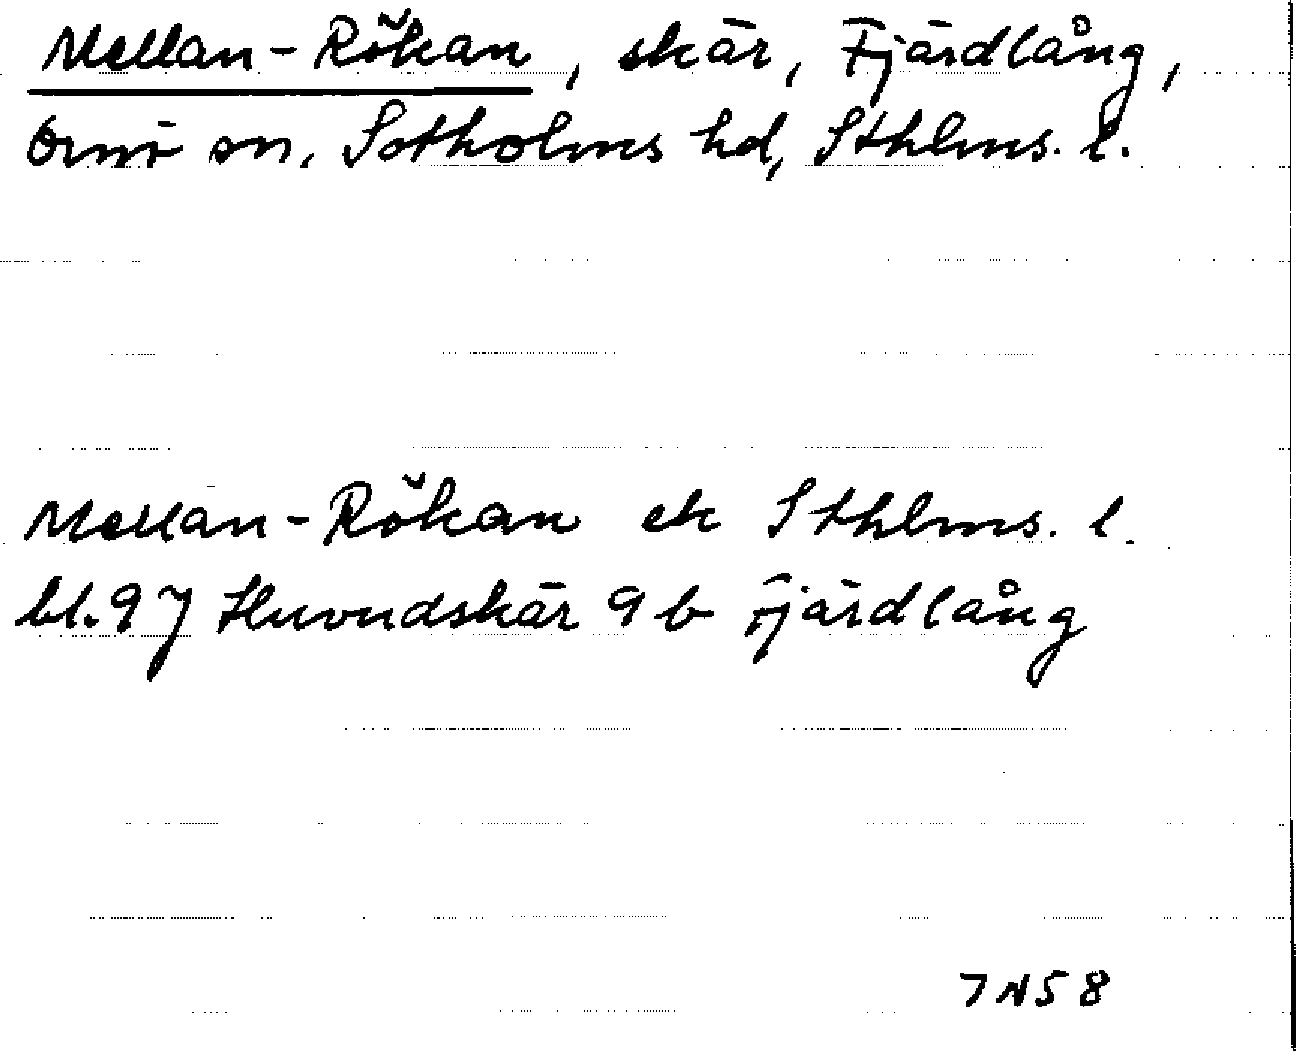 Mellan-Rökan, skär, Fjärdlång,
Ornö sn, Sotholms hd, Sthlms. l.
Mellan-Rökan ek Sthlms. l.
bl. 97 Huvudskär 9 b Fjärdlång
7 N 5 8